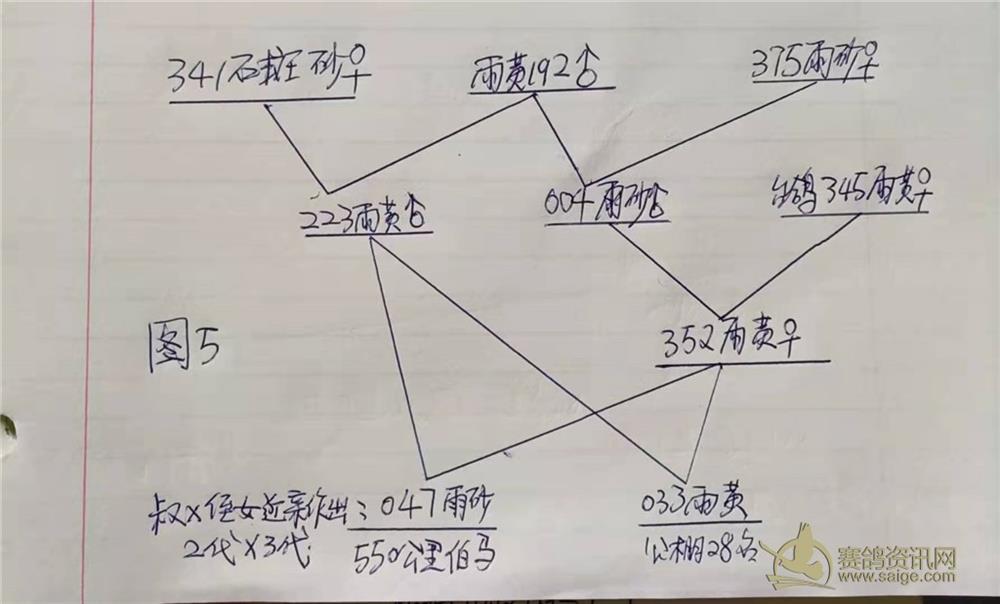 341石斑砂♀ 雨黄192♂ 375雨砂♀
223雨黄♂ 004雨砂♂ 345雨黄♀
图5
352雨黄♀
叔×侄女近亲作出: 047雨砂 033雨黄
2代×3代 550公里伯马 公棚28名
赛鸽资讯网
www.saige.com